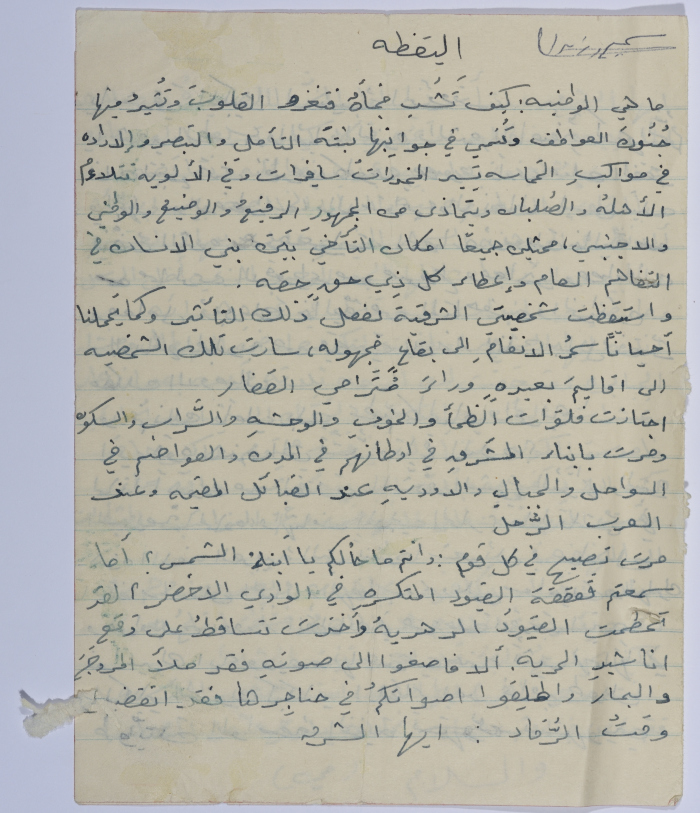 اليقظه
ما هي الوطنيه؛ كيف تَشُب فجأةً فتغمر القلوبَ وتُثيرُ منها
جُنُودَ العواطف وتُنمي في جوانبها نبتة التأمل والتبصر والاراده
في مواكبِ الحماسه تسير المخدراتُ سافرات وفي الألويه تتلاءمُ
الأهلةُ والصُلبان ويتحاذى من الجمهور الرفيعُ والوضيعُ والوطني
والاجنبي، ممثلين جميعًا امكان التآخي بَيْنَ بني الانسان في
التفاهم العام وإعطاء كل ذي حقٍ حِقه .
واستيقظت شخصيتي الشرقية بفعل ذلك التأثير وكما يَحملنا
أحيانًا سحرُ الانغامِ الى بقاع مجهوله، سارت تلك الشخصيه
الى اقاليمَ بعيدهٍ وراءَ مُتَرامي القفار
اجتازت فلوات الظمأ والخوفِ والوحشهِ والسَّراب والسكون
ومرت بابناء المشرقِ في اوطانهم في المدن والعواصم في
السواحل والجبالِ والاوديهِ عند القبائل المقيمه وعند
العرب الرُّحل
مرت تصيح في كل قوم : وانتم ما حالكم يا ابناءَ الشمس؟ أما
سمعتم قعقعةَ القيود المتكسره في الوادي الاخضر؟ لقد
تحطمت القيودُ الـ هريةُ وأخذت تتساقطُ على وقع
اناشيدِ الحريه. ألا فاصغوا الى صوتهِ فقد ملأ المروجَ
والبحار واطلِقوا اصواتَكُم في حناجِرها فقد انقضى
وقتُ الرُّقاد : ايها الشرق